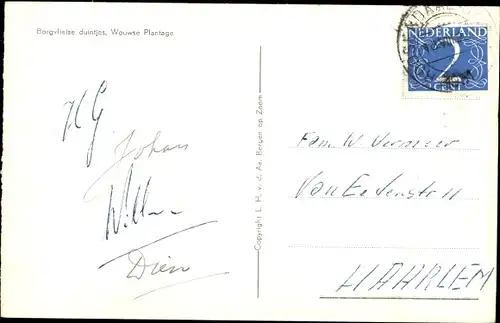 Borgvlietse duintjes, Wouwse Plantage
H G
Johan
Willem
Dien
Copyright L. H. v. d. Aa, Bergen op Zoom
NEDERLAND
2
CENT
Fam. W. Vermeer
Van Eedenstr 11
HAARLEM